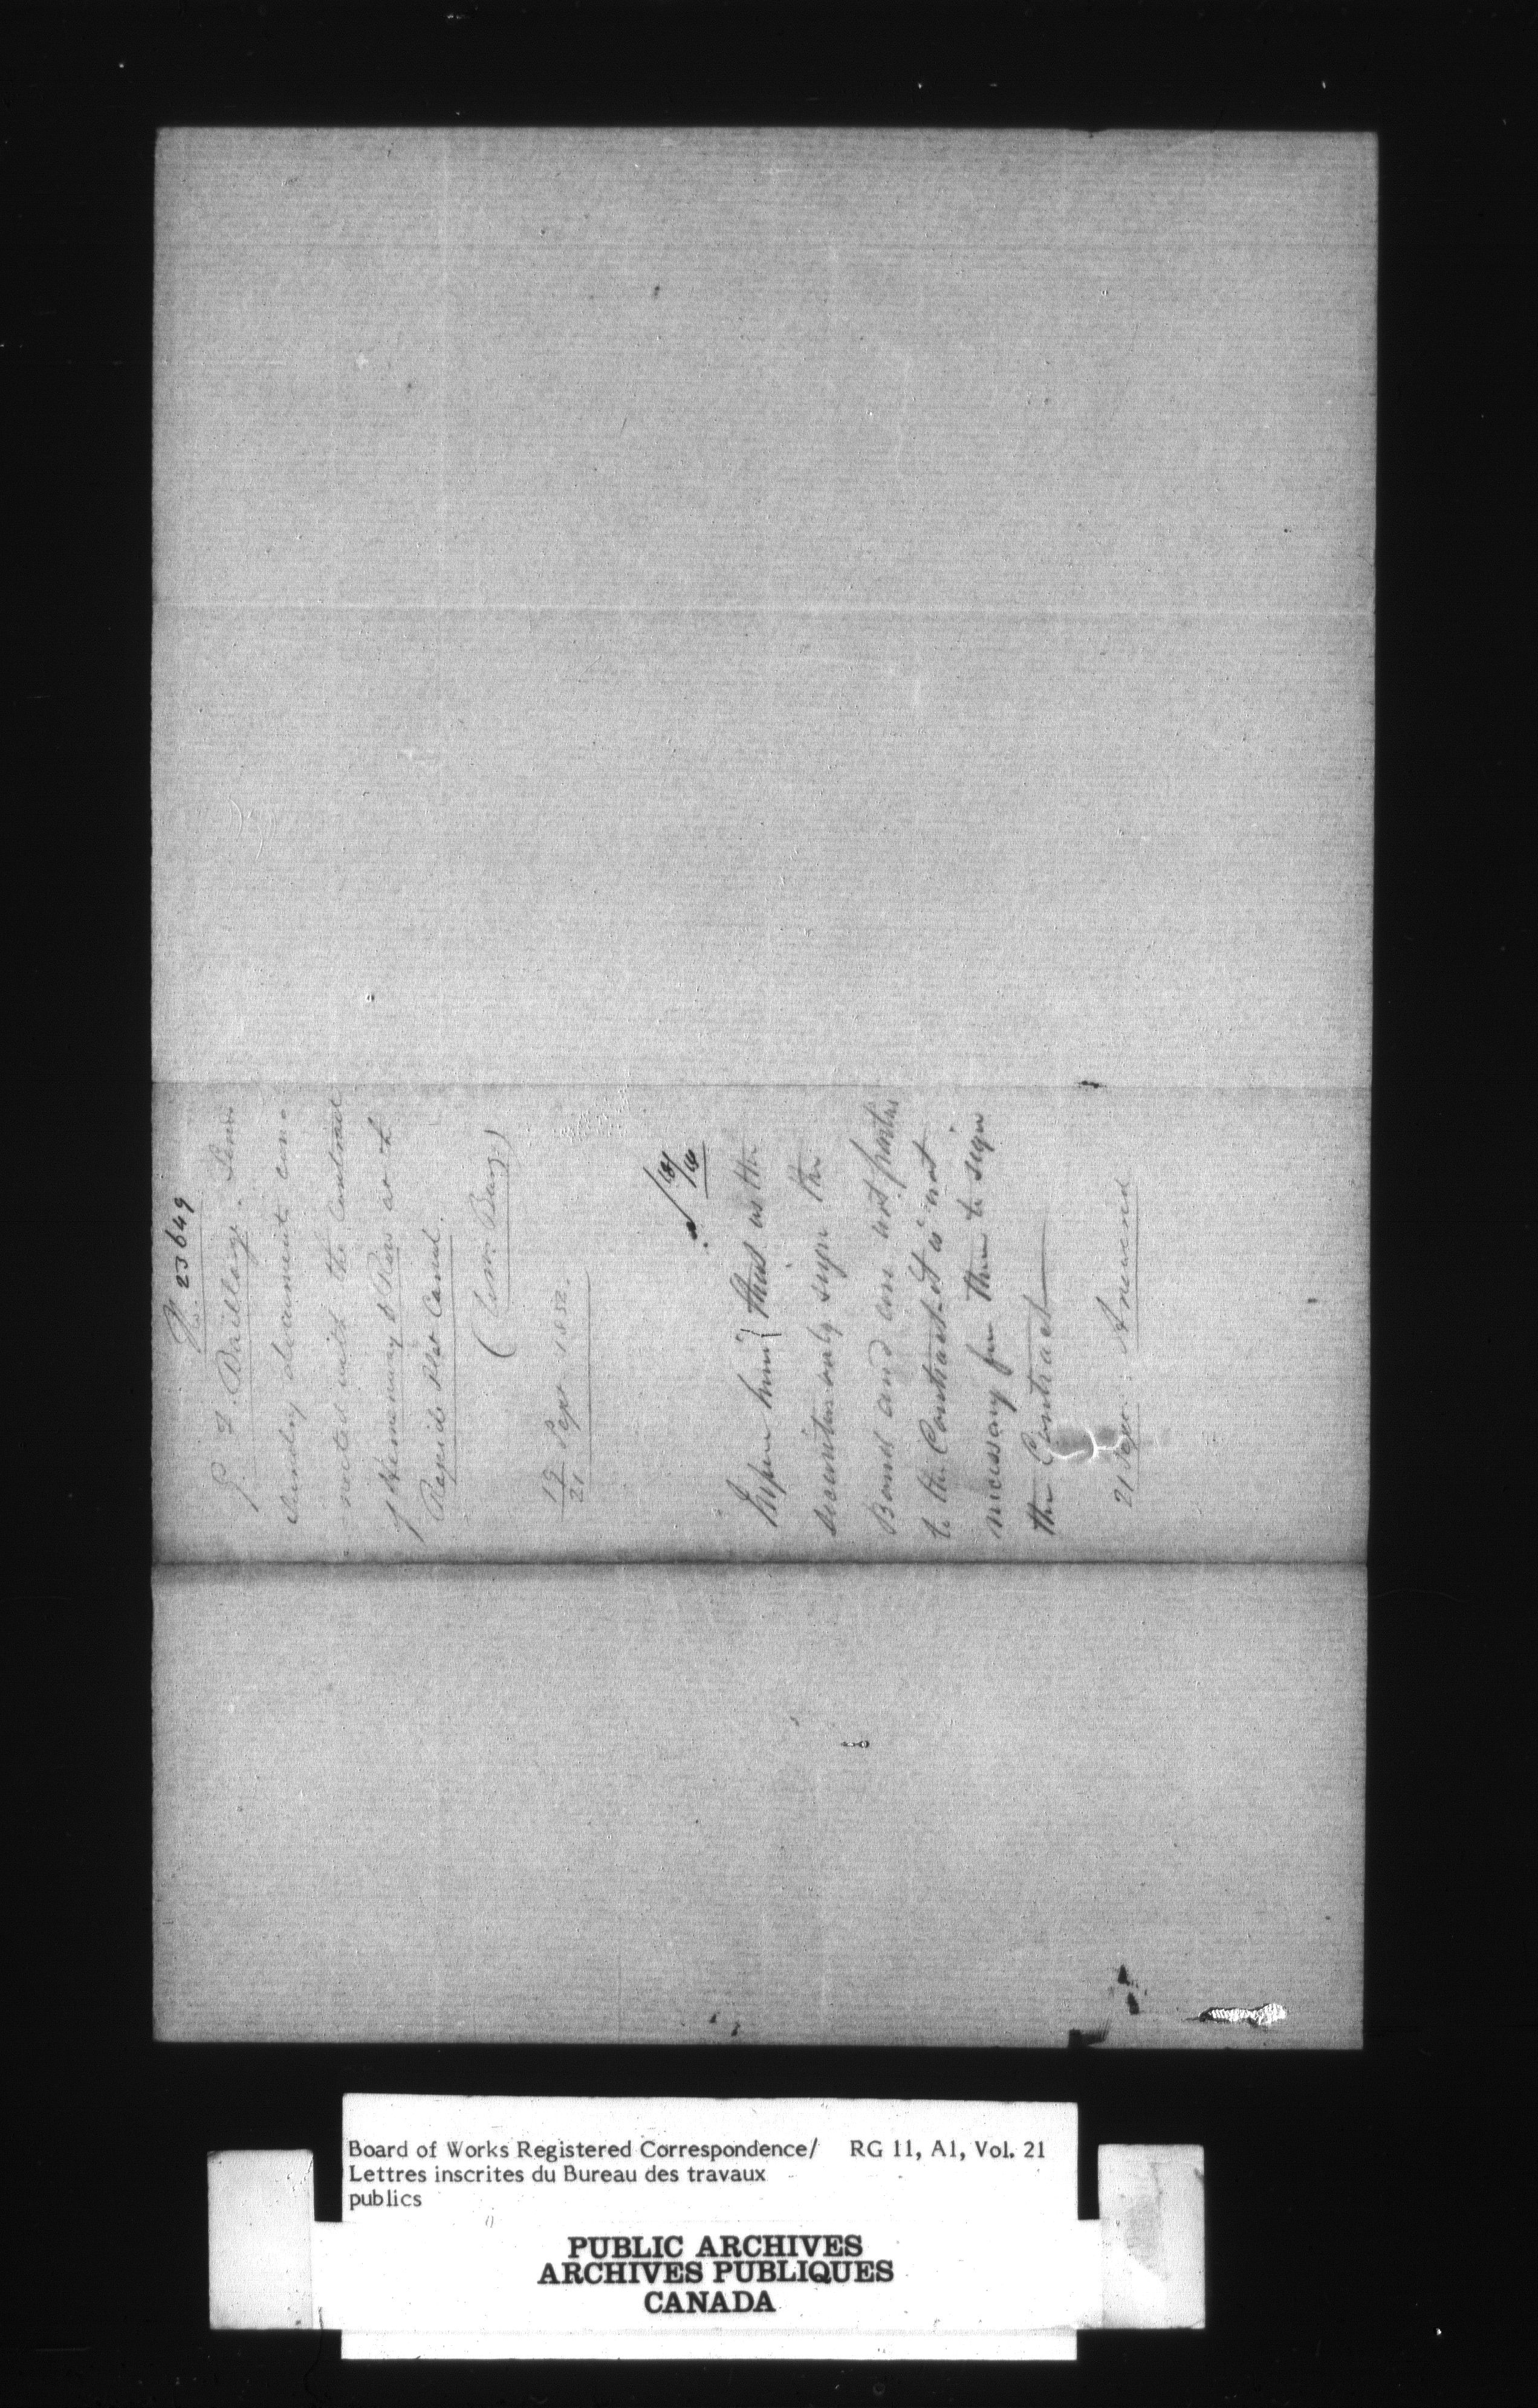 No. 23649
G. F. Baillairgé. Sends
Sundry documents con-
nected with the Contract
of Hemenway & Ross at the
Rapide Plat Canal.
19 Sept. 1852.
21
Inform him that as the
securities only sign the
Bond and are not parties
to the Contract it is not
necessary for them to sign
the Contract
21 Sept. Answered
Board of Works Registered Correspondence/ RG 11, A1, Vol. 21
Lettres inscrites du Bureau des travaux
publics
PUBLIC ARCHIVES
ARCHIVES PUBLIQUES
CANADA